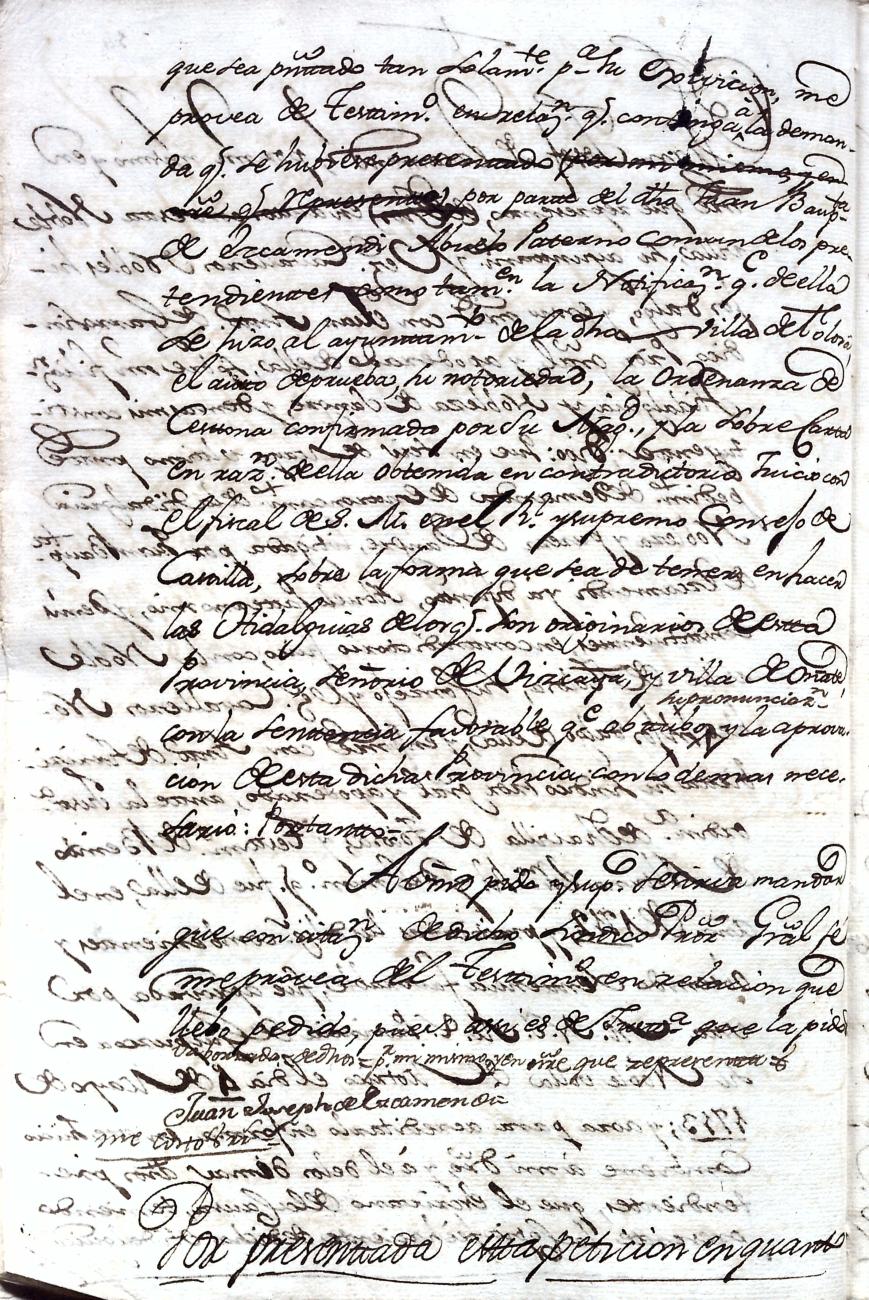 que sea pñtado tan solamte. pa. su Exivicion, me
provea de Testimo. en relazn. qe. contenga, â la deman-
da qe. se hubiese presentado por mi mismo, y en
nre. qe. represento, por parte del dho Juan Bauptta
de Ezcamendi Abuelo Paterno comun de los pre-
tendientes como tamen. la Notificazn. qe. de ella
se hizo al ayuntamto. de la dha villa de Tolosa
el auto de prueba, su notoriedad, la Ordenanza de
Cestona confirmada por Su Magd., y la sobre Carta
en razn. de ella obtenida en contradictorio Juicio con
el fiscal de S. M. en el Rl. y supremo Consejo de
Castilla, sobre la forma que sea de tener en hacer
las Hidalguias de los qe. son originarios de esta
Provincia, señorio de Vizcaya, y villa de Oñate
su pronunciazn.
con la sentencia favorable qe obtubo, y la aprova-
cion de esta dicha Provincia, con lo demas nece-
sario: Portanto
A Vm̃d pido y supco. se sirva mandar
que con citazn. de dicho Sindico Pror Gral se
me provea del Testimo. en relacion que
llebo pedido, pues asi es de Justa. que la pido
va borrado = de dhos = pr. mi mismo, y en nre que representa
Juan Joseph de Ezcamendi
Por presentada esta peticion en quanto